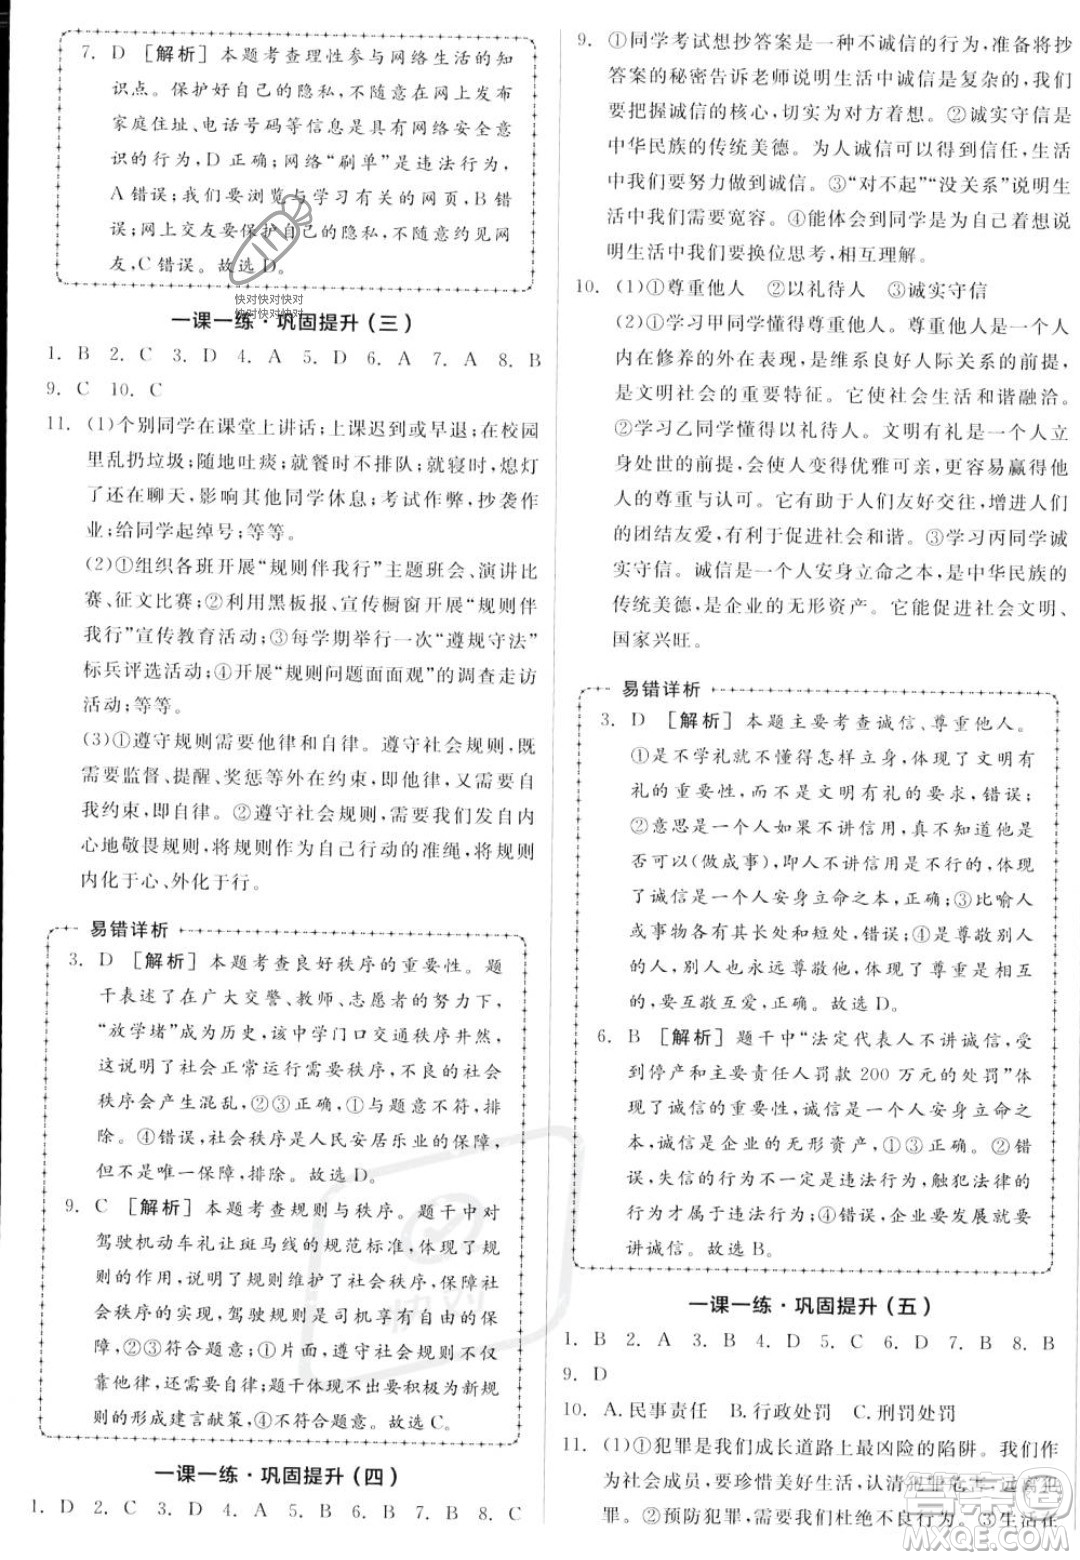 7. D [解析]本题考查理性参与网络生活的知
识点。保护好自己的隐私,不随意在网上发布
家庭住址、电话号码等信息是具有网络安全意
识的行为,D正确;网络“刷单”是违法行为,
A错误;我们要浏览与学习有关的网页,B错
误;网上交友要保护自己的隐私,不随意约见网
友,C错误。故选D。
快对快对快对
快对快对快对
一课一练·巩固提升(三)
1. B 2. C 3. D 4. A 5. D 6. A 7. A 8. B
9. C 10. C
11. (1)个别同学在课堂上讲话;上课迟到或早退;在校园
里乱扔垃圾;随地吐痰;就餐时不排队;就寝时,熄灯
了还在聊天,影响其他同学休息;考试作弊,抄袭作
业;给同学起绰号;等等。
(2)①组织各班开展“规则伴我行”主题班会、演讲比
赛、征文比赛;②利用黑板报、宣传橱窗开展“规则伴
我行”宣传教育活动;③每学期举行一次“遵规守法”
标兵评选活动;④开展“规则问题面面观”的调查走访
活动;等等。
(3)①遵守规则需要他律和自律。遵守社会规则,既
需要监督、提醒、奖惩等外在约束,即他律,也需要自
我约束,即自律。②遵守社会规则,需要我们发自内
心地敬畏规则,将规则作为自己行动的准绳,将规则
内化于心、外化于行。
易错详析
3. D [解析]本题考查良好秩序的重要性。题
干表述了在广大交警、教师、志愿者的努力下,
“放学堵”成为历史,该中学门口交通秩序井然,
这说明了社会正常运行需要秩序,不良的社会
秩序会产生混乱,②③正确,①与题意不符,排
除。④错误,社会秩序是人民安居乐业的保障,
但不是唯一保障,排除。故选D。
9. C [解析]本题考查规则与秩序。题干中对
驾驶机动车礼让斑马线的规范标准,体现了规
则的作用,说明了规则维护了社会秩序,保障社会
秩序的实现,驾驶规则是司机享有自由的保障,
②③符合题意;①片面,遵守社会规则不仅不
靠他律,还需要自律;题干体现不出要积极为新规
则的形成建言献策,④不符合题意。故选C。
一课一练·巩固提升(四)
1. D 2. C 3. D 4. A 5. B 6. B 7. B 8. C
9. ①同学考试想抄答案是一种不诚信的行为,准备将抄
答案的秘密告诉老师说明生活中诚信是复杂的,我们
要把握诚信的核心,切实为对方着想。②诚实守信是
中华民族的传统美德。为人诚信可以得到信任,生活
中我们要努力做到诚信。③“对不起”“没关系”说明生
活中我们需要宽容。④能体会到同学是为自己着想说
明生活中我们要换位思考,相互理解。
10. (1)①尊重他人 ②以礼待人 ③诚实守信
(2)①学习甲同学懂得尊重他人。尊重他人是一个人
内在修养的外在表现,是维系良好人际关系的前提,
是文明社会的重要特征。它使社会生活和谐融洽。
②学习乙同学懂得以礼待人。文明有礼是一个人立
身处世的前提,会使人变得优雅可亲,更容易赢得他
人的尊重与认可。它有助于人们友好交往,增进人们
的团结友爱,有利于促进社会和谐。③学习丙同学诚
实守信。诚信是一个人安身立命之本,是中华民族的
传统美德,是企业的无形资产。它能促进社会文明、
国家兴旺。
易错详析
3. D [解析]本题主要考查诚信、尊重他人。
①是不学礼就不懂得怎样立身,体现了文明有
礼的重要性,而不是文明有礼的要求,错误;
②意思是一个人如果不讲信用,真不知道他是
否可以(做成事),即人不讲信用是不行的,体现
了诚信是一个人安身立命之本,正确;③比喻人
或事物各有其长处和短处,错误;④是尊敬别人
的人,别人也永远尊敬他,体现了尊重是相互
的,要互敬互爱,正确。故选D。
6. B [解析]题干中“法定代表人不讲诚信,受
到停产和主要责任人罚款200万元的处罚”体
现了诚信的重要性,诚信是一个人安身立命之
本,诚信是企业的无形资产,①③正确;②错
误,失信的行为不一定是违法行为,触犯法律的
行为才属于违法行为;④错误,企业要发展就要
讲诚信。故选B。
一课一练·巩固提升(五)
1. B 2. A 3. B 4. D 5. C 6. D 7. B 8. B
9. D
10. A.民事责任 B.行政处罚 C.刑罚处罚
11. (1)①犯罪是我们成长道路上最凶险的陷阱。我们作
为社会成员,要珍惜美好生活,认清犯罪危害,远离犯
罪。②预防犯罪,需要我们杜绝不良行为。③生活在
快对
答案圈
MXQE.COM